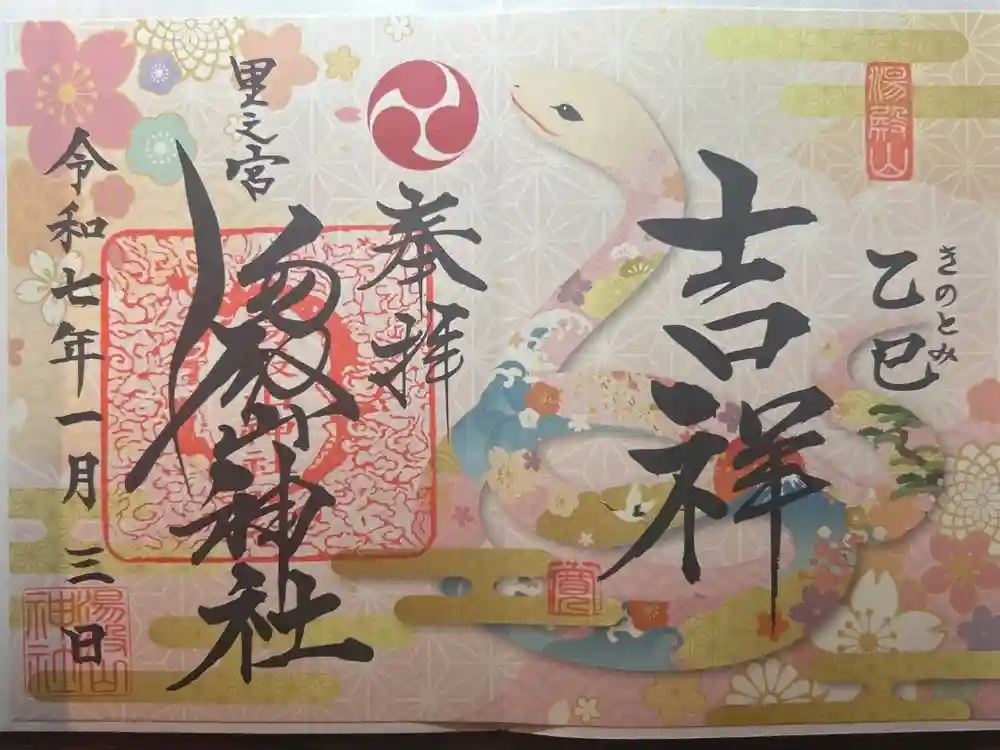 湯殿山
乙巳
きのとみ
吉祥
奉拝
里之宮
湯殿山神社
令和七年一月三日
湯殿山
神社